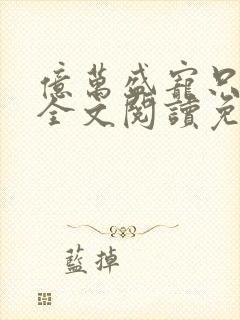 億萬盛寵只
全文閱讀免
藍掉